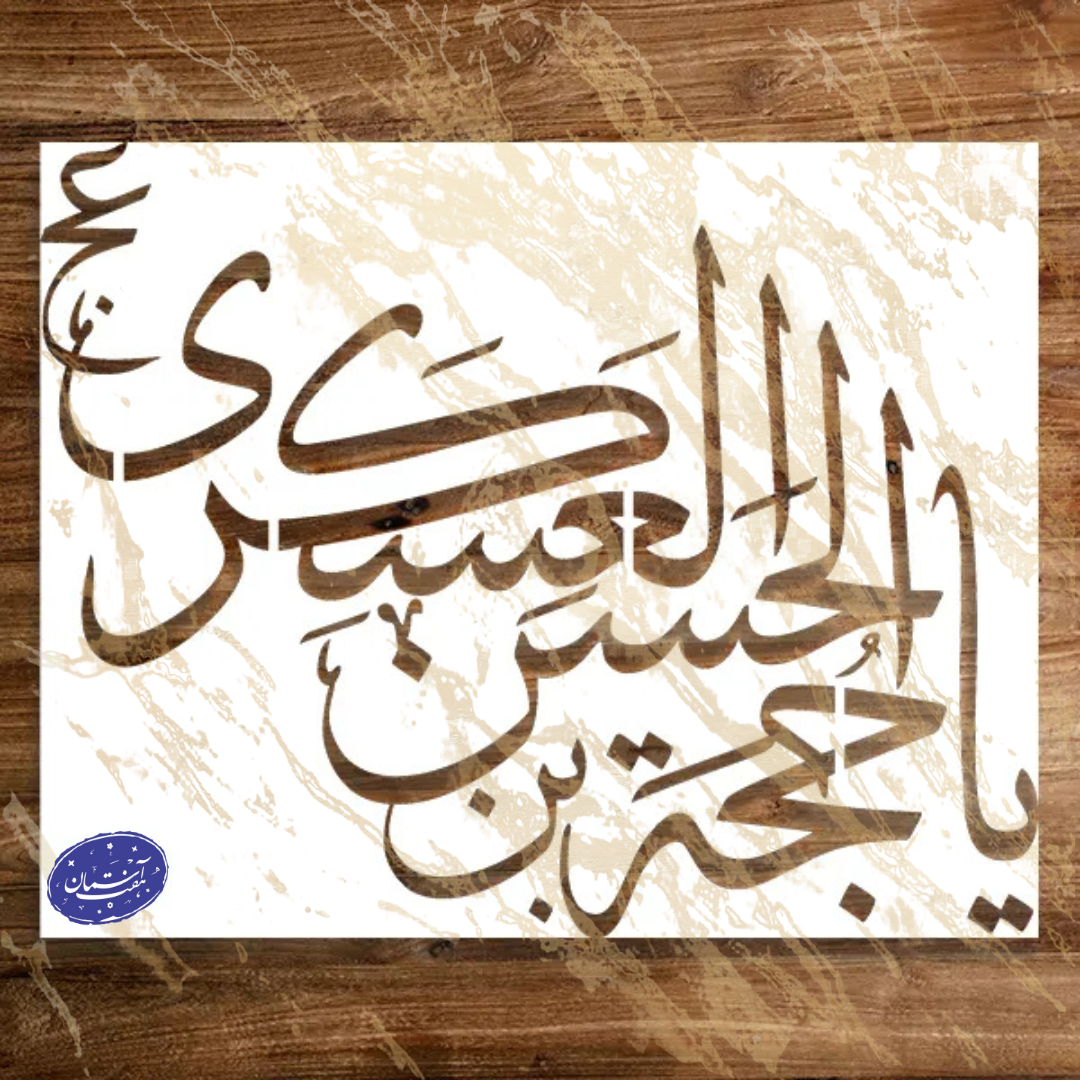 یا حُجة بن الحسن العسکری عج
هفت آسمان